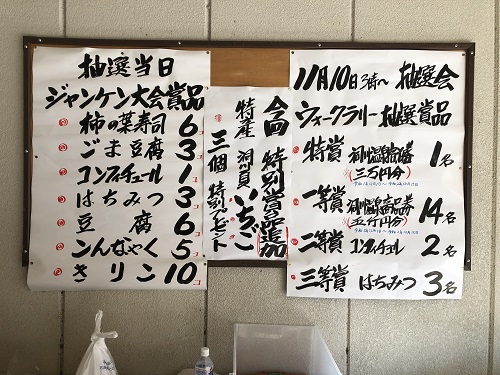 抽選当日
ジャンケン大会賞品
柿の葉寿司 6コ
ごま豆腐 3コ
コンフィチュール 1コ
はちみつ 3コ
豆腐 6コ
こんにゃく 5コ
きリン 10コ
今回 特別賞品追加
特産
いちご
三個 特別プレゼント
11月10日3時〜 抽選会
ウォークラリー抽選賞品
特賞 1名
(三万円分)
一等賞 14名
(五千円分)
二等賞 コンフィチュール 2名
三等賞 はちみつ 3名